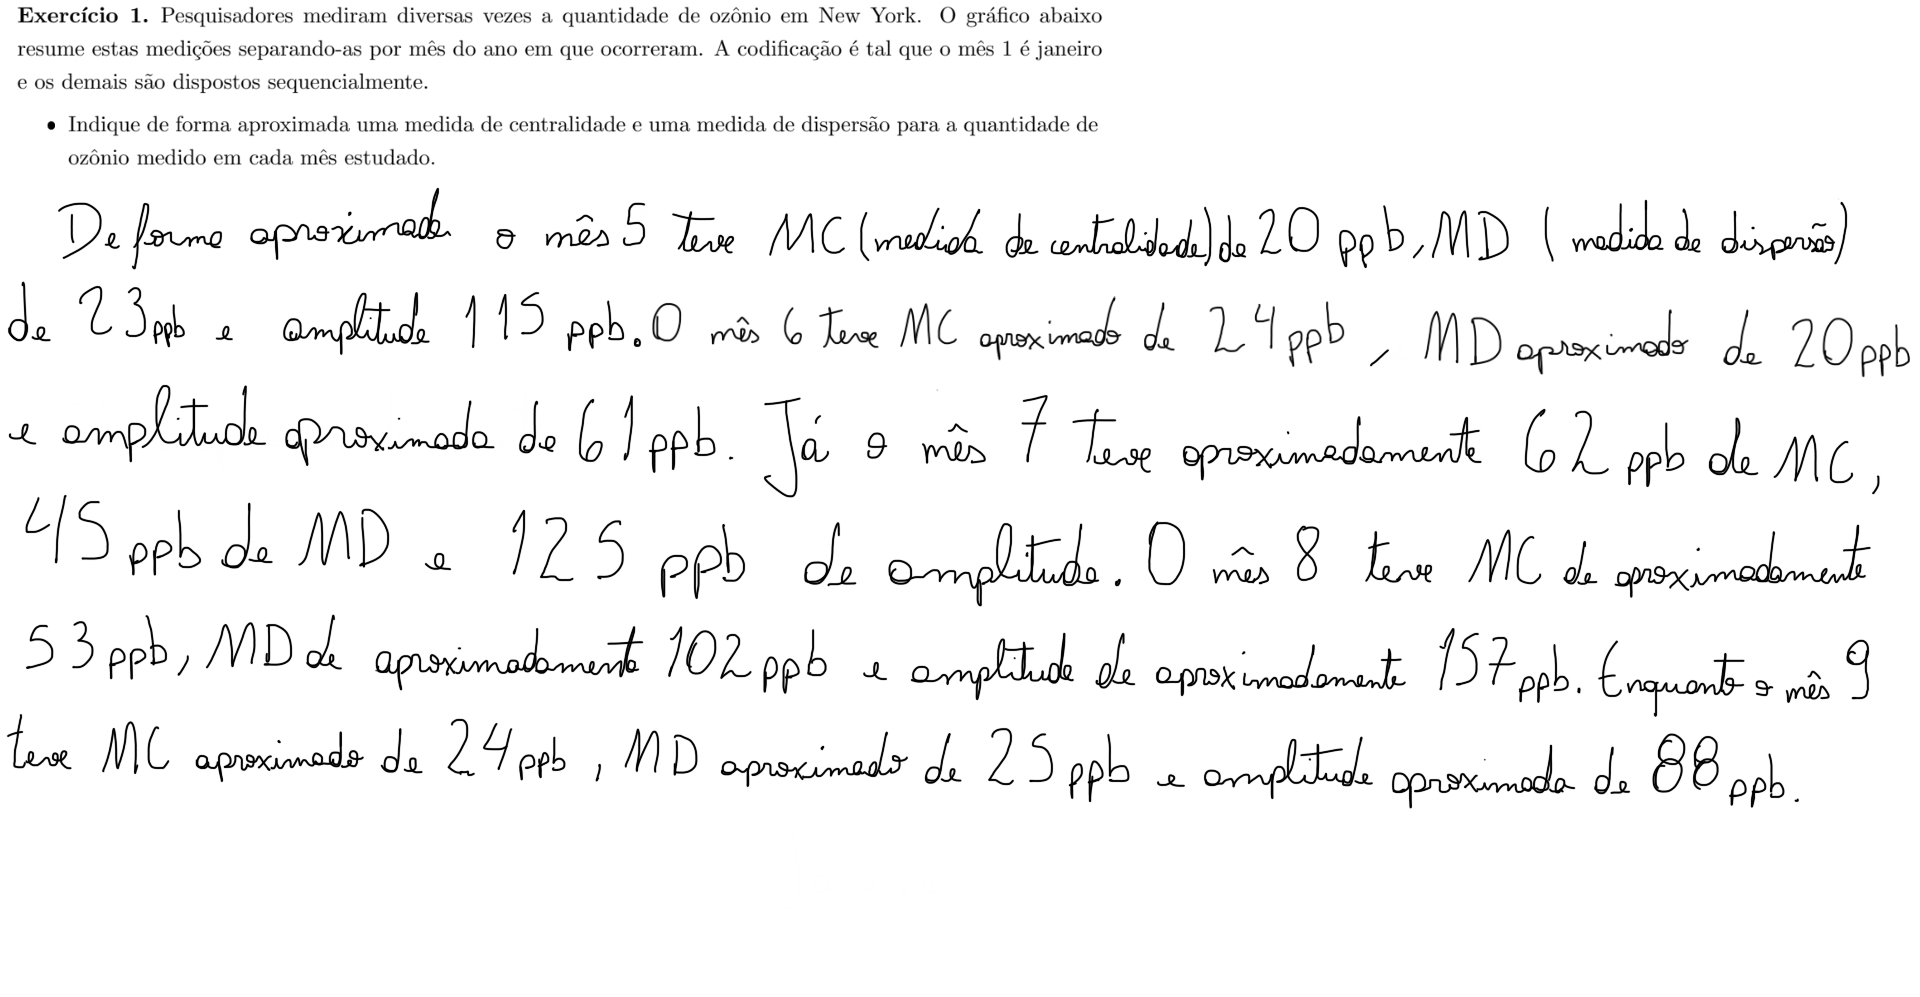 Exercício 1. Pesquisadores mediram diversas vezes a quantidade de ozônio em New York. O gráfico abaixo
resume estas medições separando-as por mês do ano em que ocorreram. A codificação é tal que o mês 1 é janeiro
e os demais são dispostos sequencialmente.
• Indique de forma aproximada uma medida de centralidade e uma medida de dispersão para a quantidade de
ozônio medido em cada mês estudado.
De forma aproximada o mês 5 teve MC (medida de centralidade) de 20 ppb, MD (medida de dispersão)
de 23 ppb e amplitude 115 ppb. O mês 6 teve MC aproximado de 24 ppb, MD aproximado de 20 ppb
e amplitude aproximada de 61 ppb. Já o mês 7 teve aproximadamente 62 ppb de MC,
45 ppb de MD e 125 ppb de amplitude. O mês 8 teve MC de aproximadamente
53 ppb, MD de aproximadamente 102 ppb e amplitude de aproximadamente 157 ppb. Enquanto o mês 9
teve MC aproximado de 24 ppb, MD aproximado de 25 ppb e amplitude aproximada de 88 ppb.